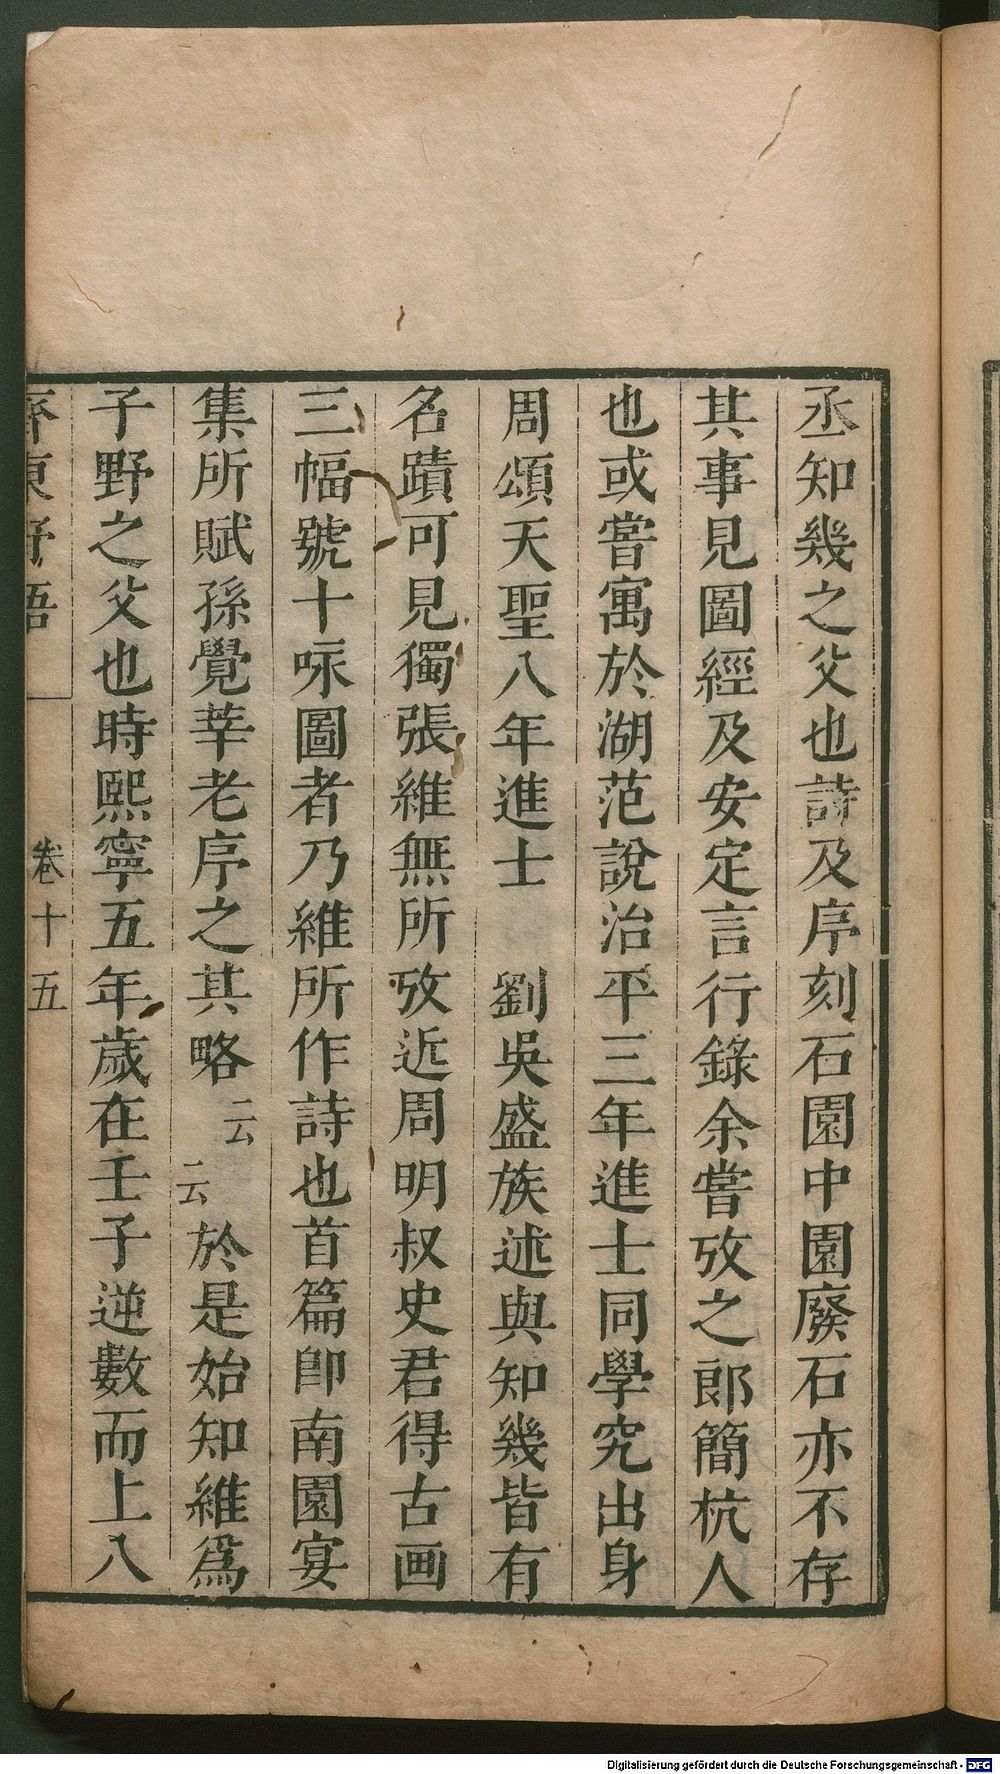 丞知幾之父也詩及序刻石園中園廢石亦不存
其事見圖經及安定言行錄余嘗攷之郎簡杭人
也或嘗寓於湖范說治平三年進士同學究出身
周頌天聖八年進士　劉吳盛族述與知幾皆有
名蹟可見獨張維無所攷近周明叔史君得古画
三幅號十咏圖者乃維所作詩也首篇卽南園宴
集所賦孫覺莘老序之其略云云於是始知維爲
子野之父也時熙寧五年歲在壬子逆數而上八
齊東野語　卷十五
Digitalisierung gefördert durch die Deutsche Forschungsgemeinschaft - DFG